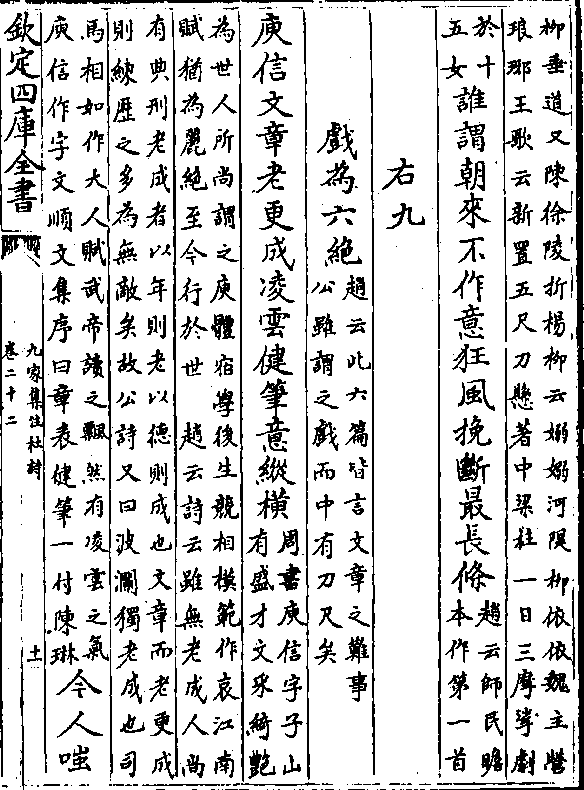 柳垂道又陳徐陵折楊柳云嫋嫋河隄柳依依魏主營
瑯琊王歌云新置五尺刀懸著中梁柱一日三摩挲劇
於十五女誰謂朝來不作意狂風挽斷最長條趙云師民瞻本作第一首
右九
戲為六絶趙云此六篇皆言文章之難事公雖謂之戲而中有刀尺矣
庾信文章老更成凌雲健筆意縱橫周書庾信字子山有盛才文采綺艶
為世人所尚謂之庾體宿學後生競相模範作哀江南
賦猶為麗絶至今行於世 趙云詩云雖無老成人尚
有典刑老成者以年則老以德則成也文章而老更成
則練歴之多為無敵矣故公詩又曰波瀾獨老成也司
馬相如作大人賦武帝讀之飄然有凌雲之氣
庾信作字文順文集序曰章表健筆一付陳琳今人嗤
欽定四庫全書
九家集注杜詩
卷二十二
十一